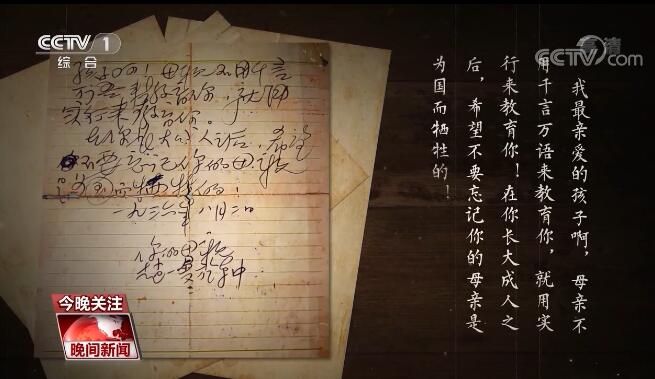 CCTV 1
综合
CCTV.com
高清
孩子啊！母亲不用千言
万语来教育你，就用
实行来教育你。
在你长大成人之后，希望
不要忘记你的母亲
为国而牺牲的！
一九三六年八月二日
你的母亲
赵一曼於车中
我最亲爱的孩子啊，母亲不
用千言万语来教育你，就用实
行来教育你！在你长大成人之
后，希望不要忘记你的母亲是
为国而牺牲的！
今晚关注
晚间新闻